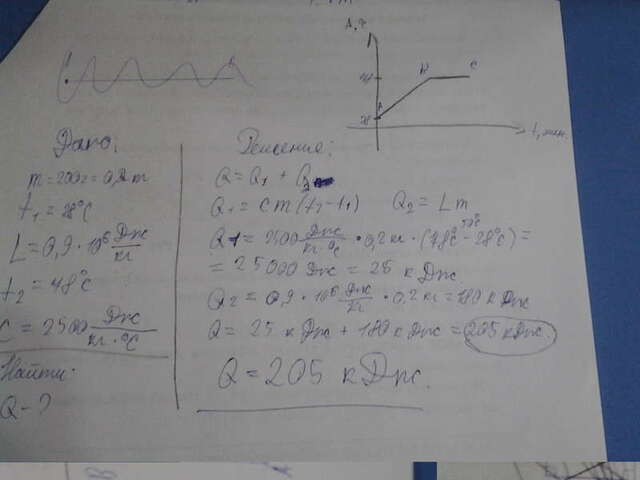 t, мин.
A
B
C
Дано:
m = 200г = 0,2
t₁ = 28°C
L = 0,9 · 10⁶ Дж/кг
t₂ = 78°C
C = 2500 Дж/(кг · °C)
Найти:
Q - ?
Решение:
Q = Q₁ + Q₂
Q₁ = cm(t₂ - t₁) Q₂ = Lm
Q₁ = 2500 Дж/(кг °C) · 0,2 кг · (78°C - 28°C) = 50°C
= 25000 Дж = 25 кДж.
Q₂ = 0,9 · 10⁶ Дж/кг · 0,2 кг = 180 кДж
Q = 25 кДж + 180 кДж = 205 кДж.
Q = 205 кДж.